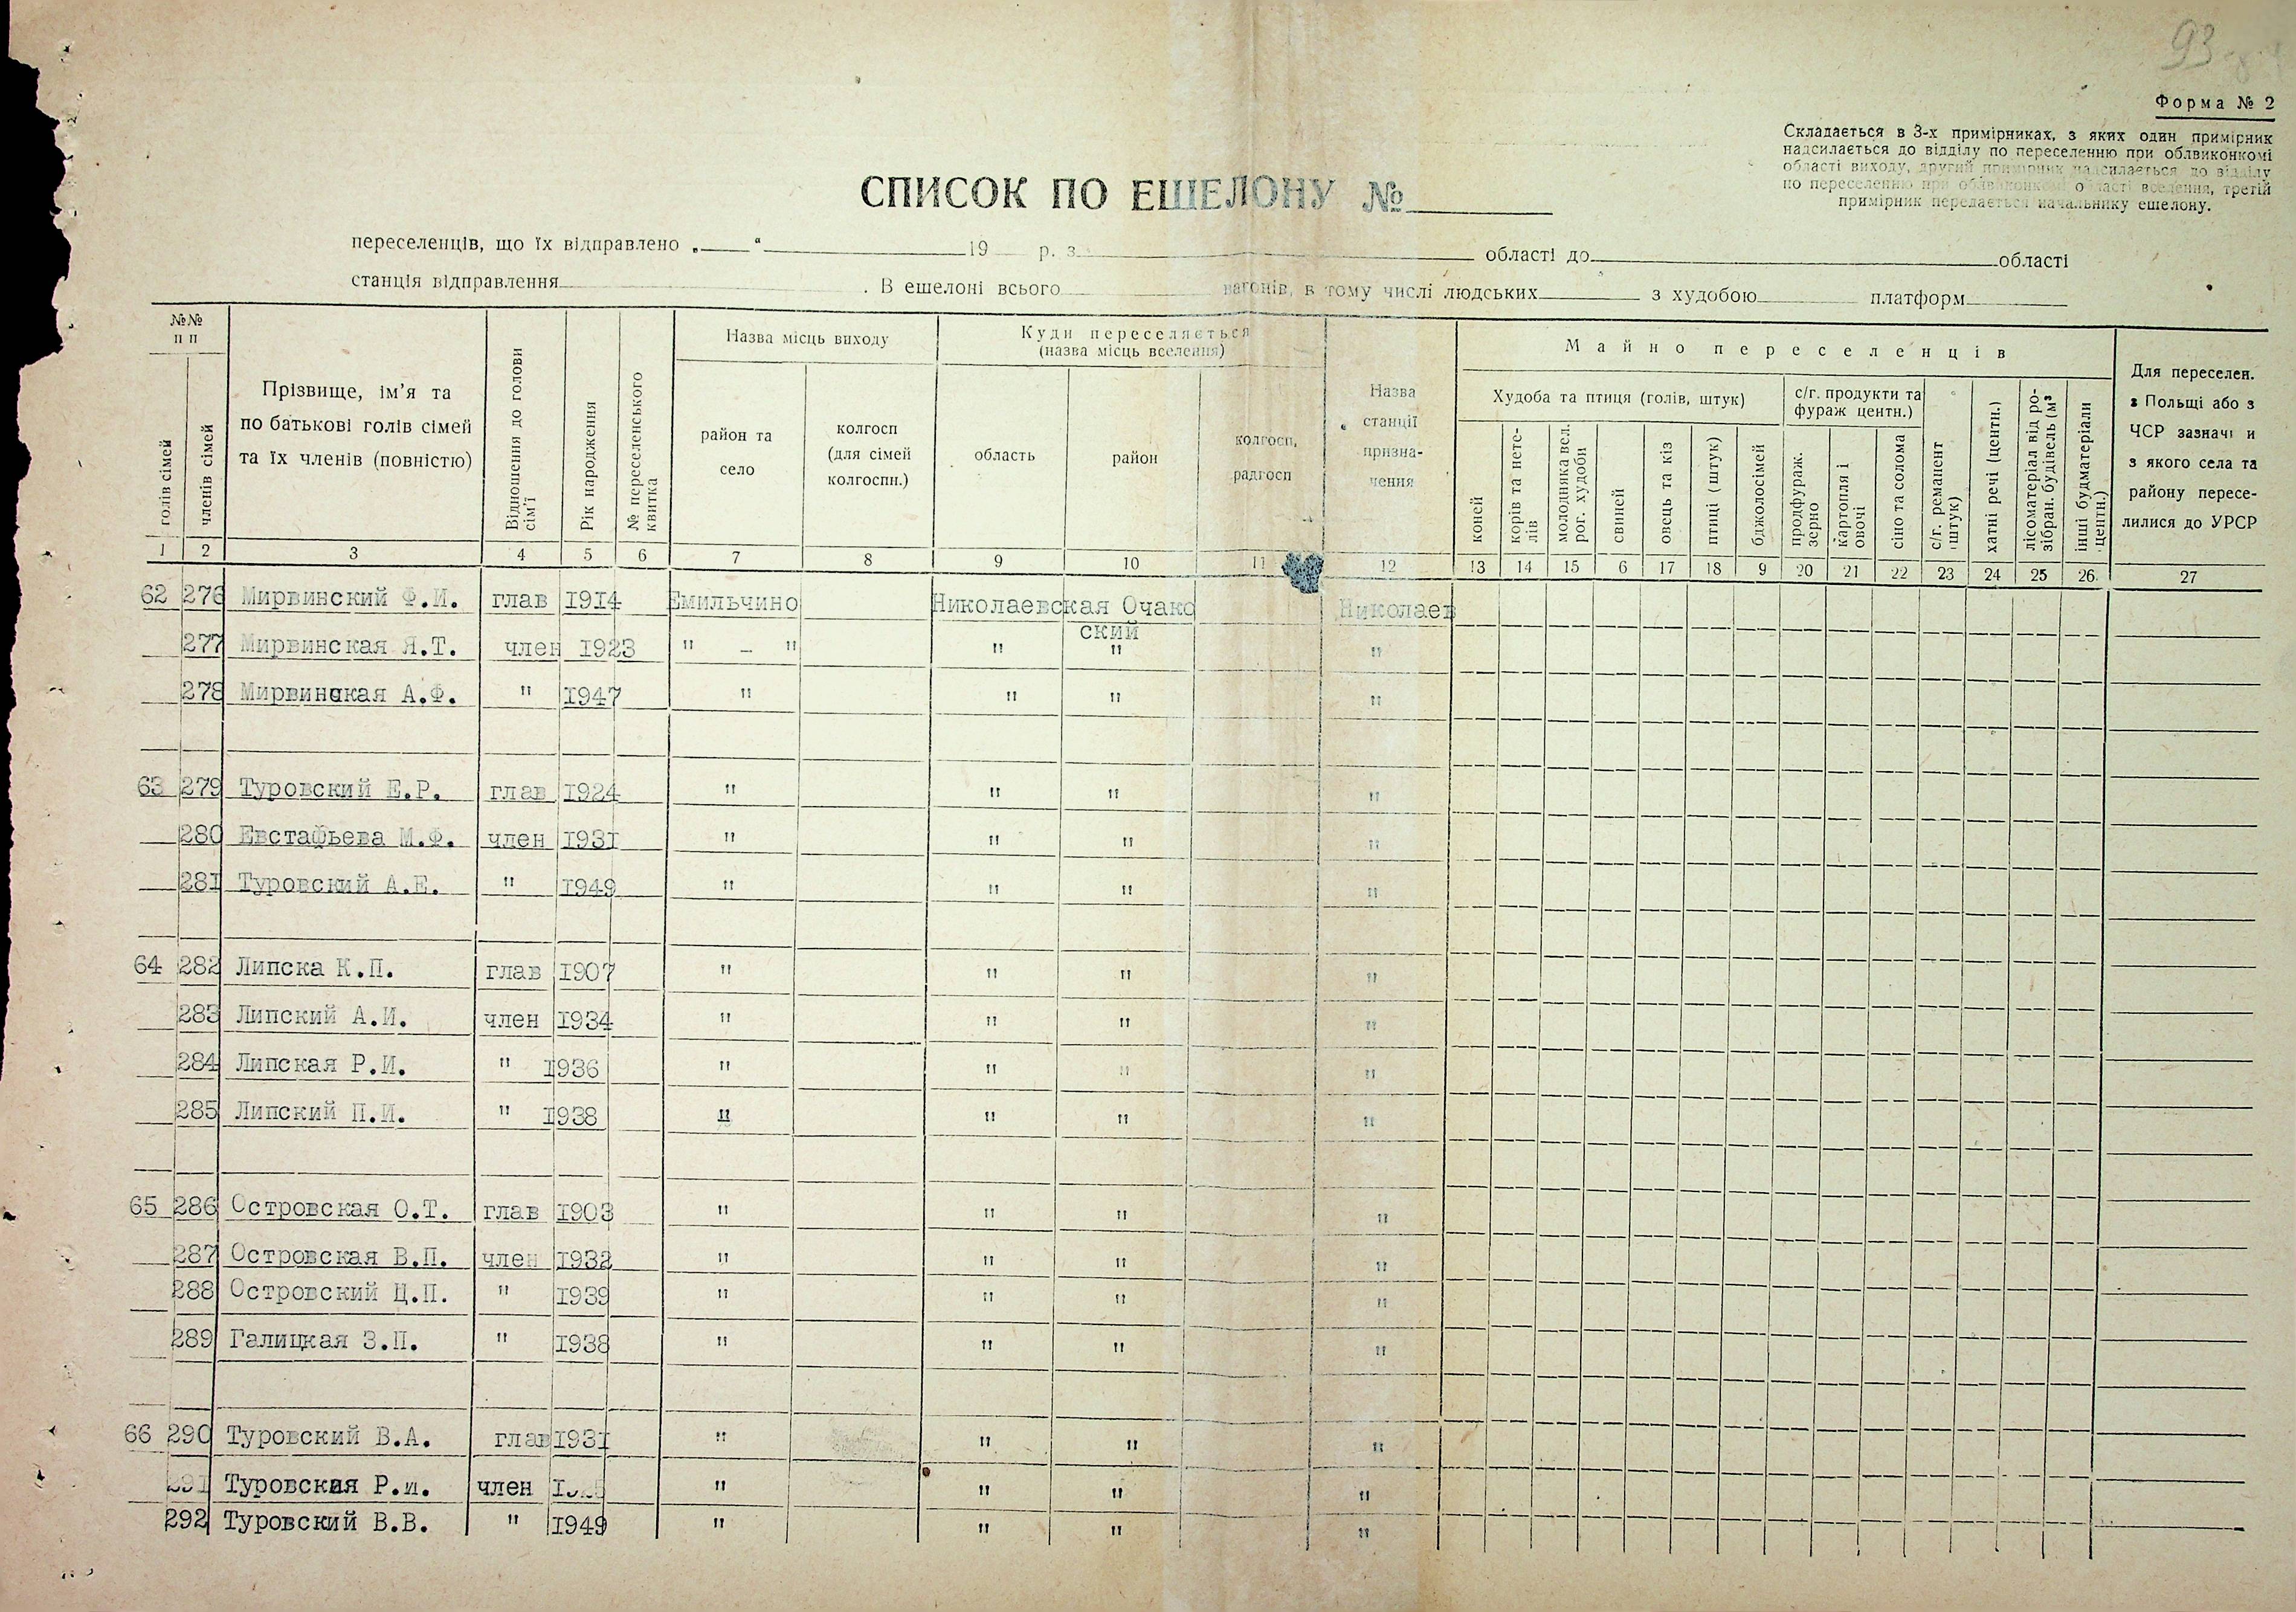 93
Форма № 2
Складається в 3-х примірниках, з яких один примірник
надсилається до відділу по переселенню при облвиконкомі
області виходу, другий примірник надсилається до відділу
по переселенню при облвиконкомі області вселення, третій
примірник передається начальнику ешелону.
СПИСОК ПО ЕШЕЛОНУ №
переселенців, що їх відправлено „ “ 19 р. з області до області
станція відправлення . В ешелоні всього вагонів, в тому числі людських з худобою платформ
№№ п п
голів сімей
членів сімей
Прізвище, ім’я та
по батькові голів сімей
та їх членів (повністю)
Відношення до голови сім’ї
Рік народження
№ переселенського квитка
Назва місць виходу
район та
село
колгосп
(для сімей
колгоспн.)
Куди переселяється
(назва місць вселення)
область
район
колгосп,
радгосп
Назва
станції
призна-
чення
Майно переселенців
Худоба та птиця (голів, штук)
коней
корів та нете-
лів
молодняка вел.
рог. худоби
свиней
овець та кіз
птиці (штук)
бджолосімей
с/г. продукти та
фураж центн.)
продфураж.
зерно
картопля і
овочі
сіно та солома
с/г. реманент
(штук)
хатні речі (центн.)
лісоматеріал від ро-
зібран. будівель (м³
інші будматеріали
центн.)
Для переселен.
з Польщі або з
ЧСР зазначи и
з якого села та
району пересе-
лилися до УРСР
1 2 3 4 5 6 7 8 9 10 11 12 13 14 15 6 17 18 9 20 21 22 23 24 25 26. 27
62 276 Мирвинский Ф.И. глав 1914 Емильчино Николаевская Очако Николаев
ский
277 Мирвинская Я.Т. член 1923 " – " " " "
278 Мирвинская А.Ф. " 1947 " " " "
63 279 Туровский Е.Р. глав 1924 " " " "
280 Евстафьева М.Ф. член 1931 " " " "
281 Туровский А.Е. " 1949 " " " "
64 282 Липска К.П. глав 1907 " " " "
283 Липский А.И. член 1934 " " " "
284 Липская Р.И. " 1936 " " " "
285 Липский П.И. " 1938 " " " "
65 286 Островская О.Т. глав 1903 " " " "
287 Островская В.П. член 1932 " " " "
288 Островский Ц.П. " 1939 " " " "
289 Галицкая З.П. " 1938 " " " "
66 290 Туровский В.А. глав 1931 " " " "
291 Туровская Р.и. член " " " "
292 Туровский В.В. " 1949 " " " "